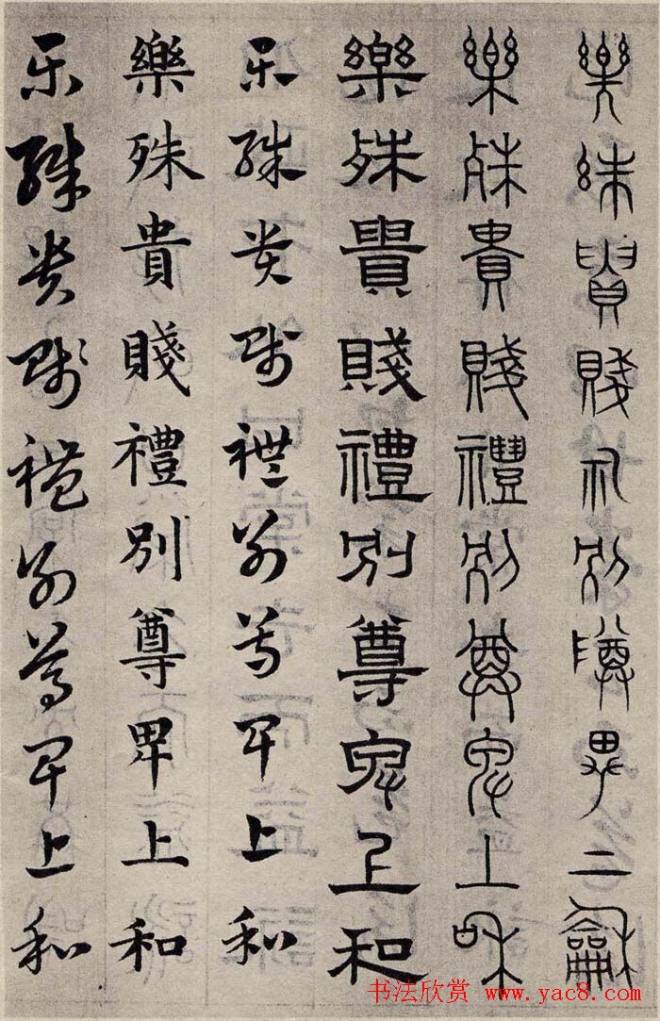 樂殊貴賤礼別尊卑二龢
樂殊貴賤禮別尊卑上和
樂殊貴賤禮別尊卑上和
樂殊貴賤禮別尊卑上和
樂殊貴賤禮別尊卑上和
樂殊貴賤禮別尊卑上和
书法欣赏 www.yac8.com